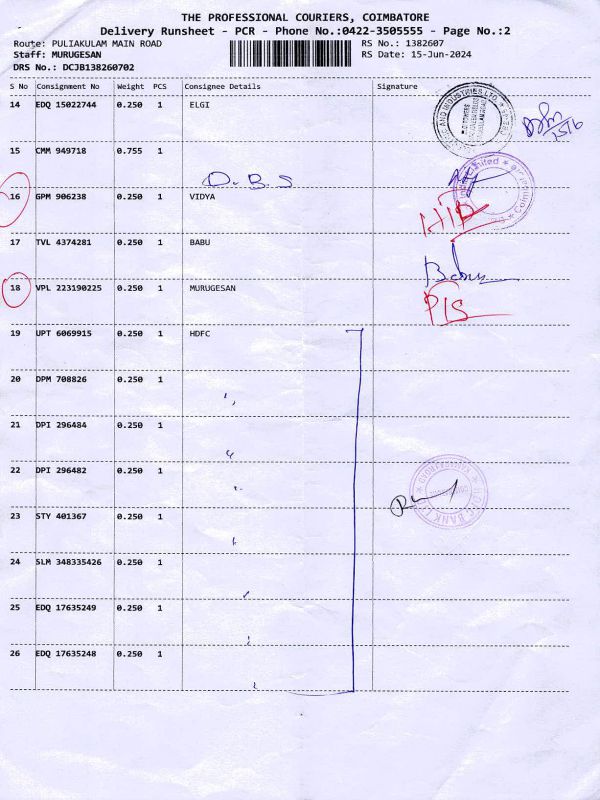 THE PROFESSIONAL COURIERS, COIMBATORE
Delivery Runsheet - PCR - Phone No.:0422-3505555 - Page No.:2
Route: PULIAKULAM MAIN ROAD RS No.: 1382607
Staff: MURUGESAN RS Date: 15-Jun-2024
DRS No.: DCJB138260702
S No Consignment No Weight PCS Consignee Details Signature
14 EDQ 15022744 0.250 1 ELGI
15/6
15 CMM 949718 0.755 1
O.B.S
16 GPM 906238 0.250 1 VIDYA
17 TVL 4374281 0.250 1 BABU
Babu
18 VPL 223190225 0.250 1 MURUGESAN
19 UPT 6069915 0.250 1 HDFC
20 DPM 708826 0.250 1 "
21 DPI 296484 0.250 1 "
22 DPI 296482 0.250 1 "
23 STY 401367 0.250 1 "
24 SLM 348335426 0.250 1 "
25 EDQ 17635249 0.250 1 "
26 EDQ 17635248 0.250 1 "